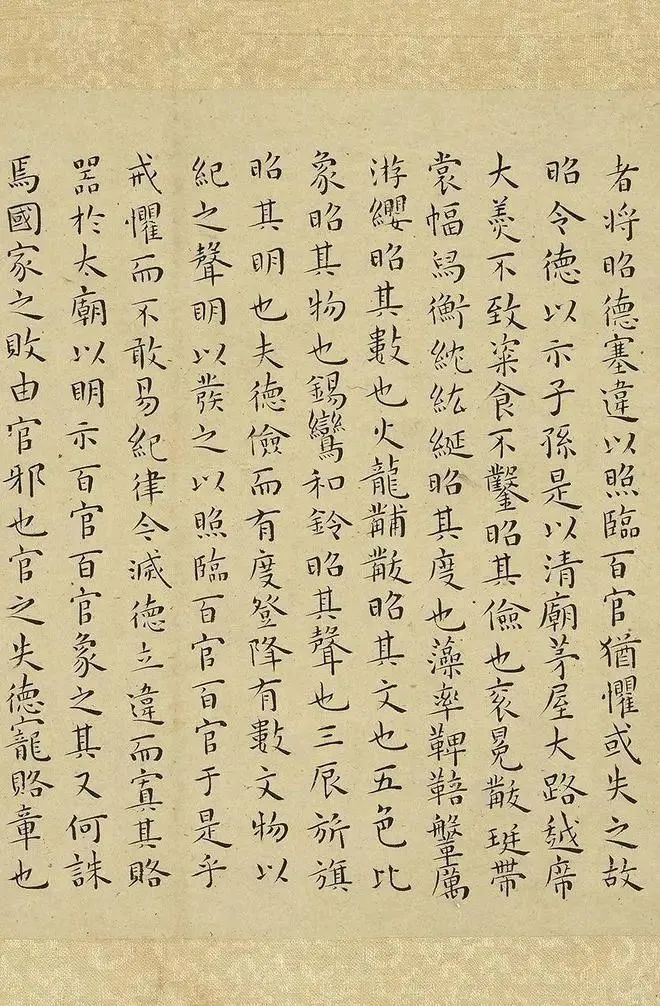 者将昭德塞違以照臨百官猶懼或失之故
昭令德以示子孫是以清廟茅屋大路越席
大羹不致粢食不鑿昭其儉也衮冕黻珽帶
裳幅舄衡紞紘綖昭其度也藻率鞞鞛鞶厲
游纓昭其數也火龍黼黻昭其文也五色比
象昭其物也錫鸞和鈴昭其聲也三辰旂旗
昭其明也夫德儉而有度登降有數文物以
紀之聲明以發之以照臨百官百官于是乎
戒懼而不敢易紀律令滅德立違而寘其賂
器於太廟以明示百官百官象之其又何誅
焉國家之敗由官邪也官之失德寵賂章也